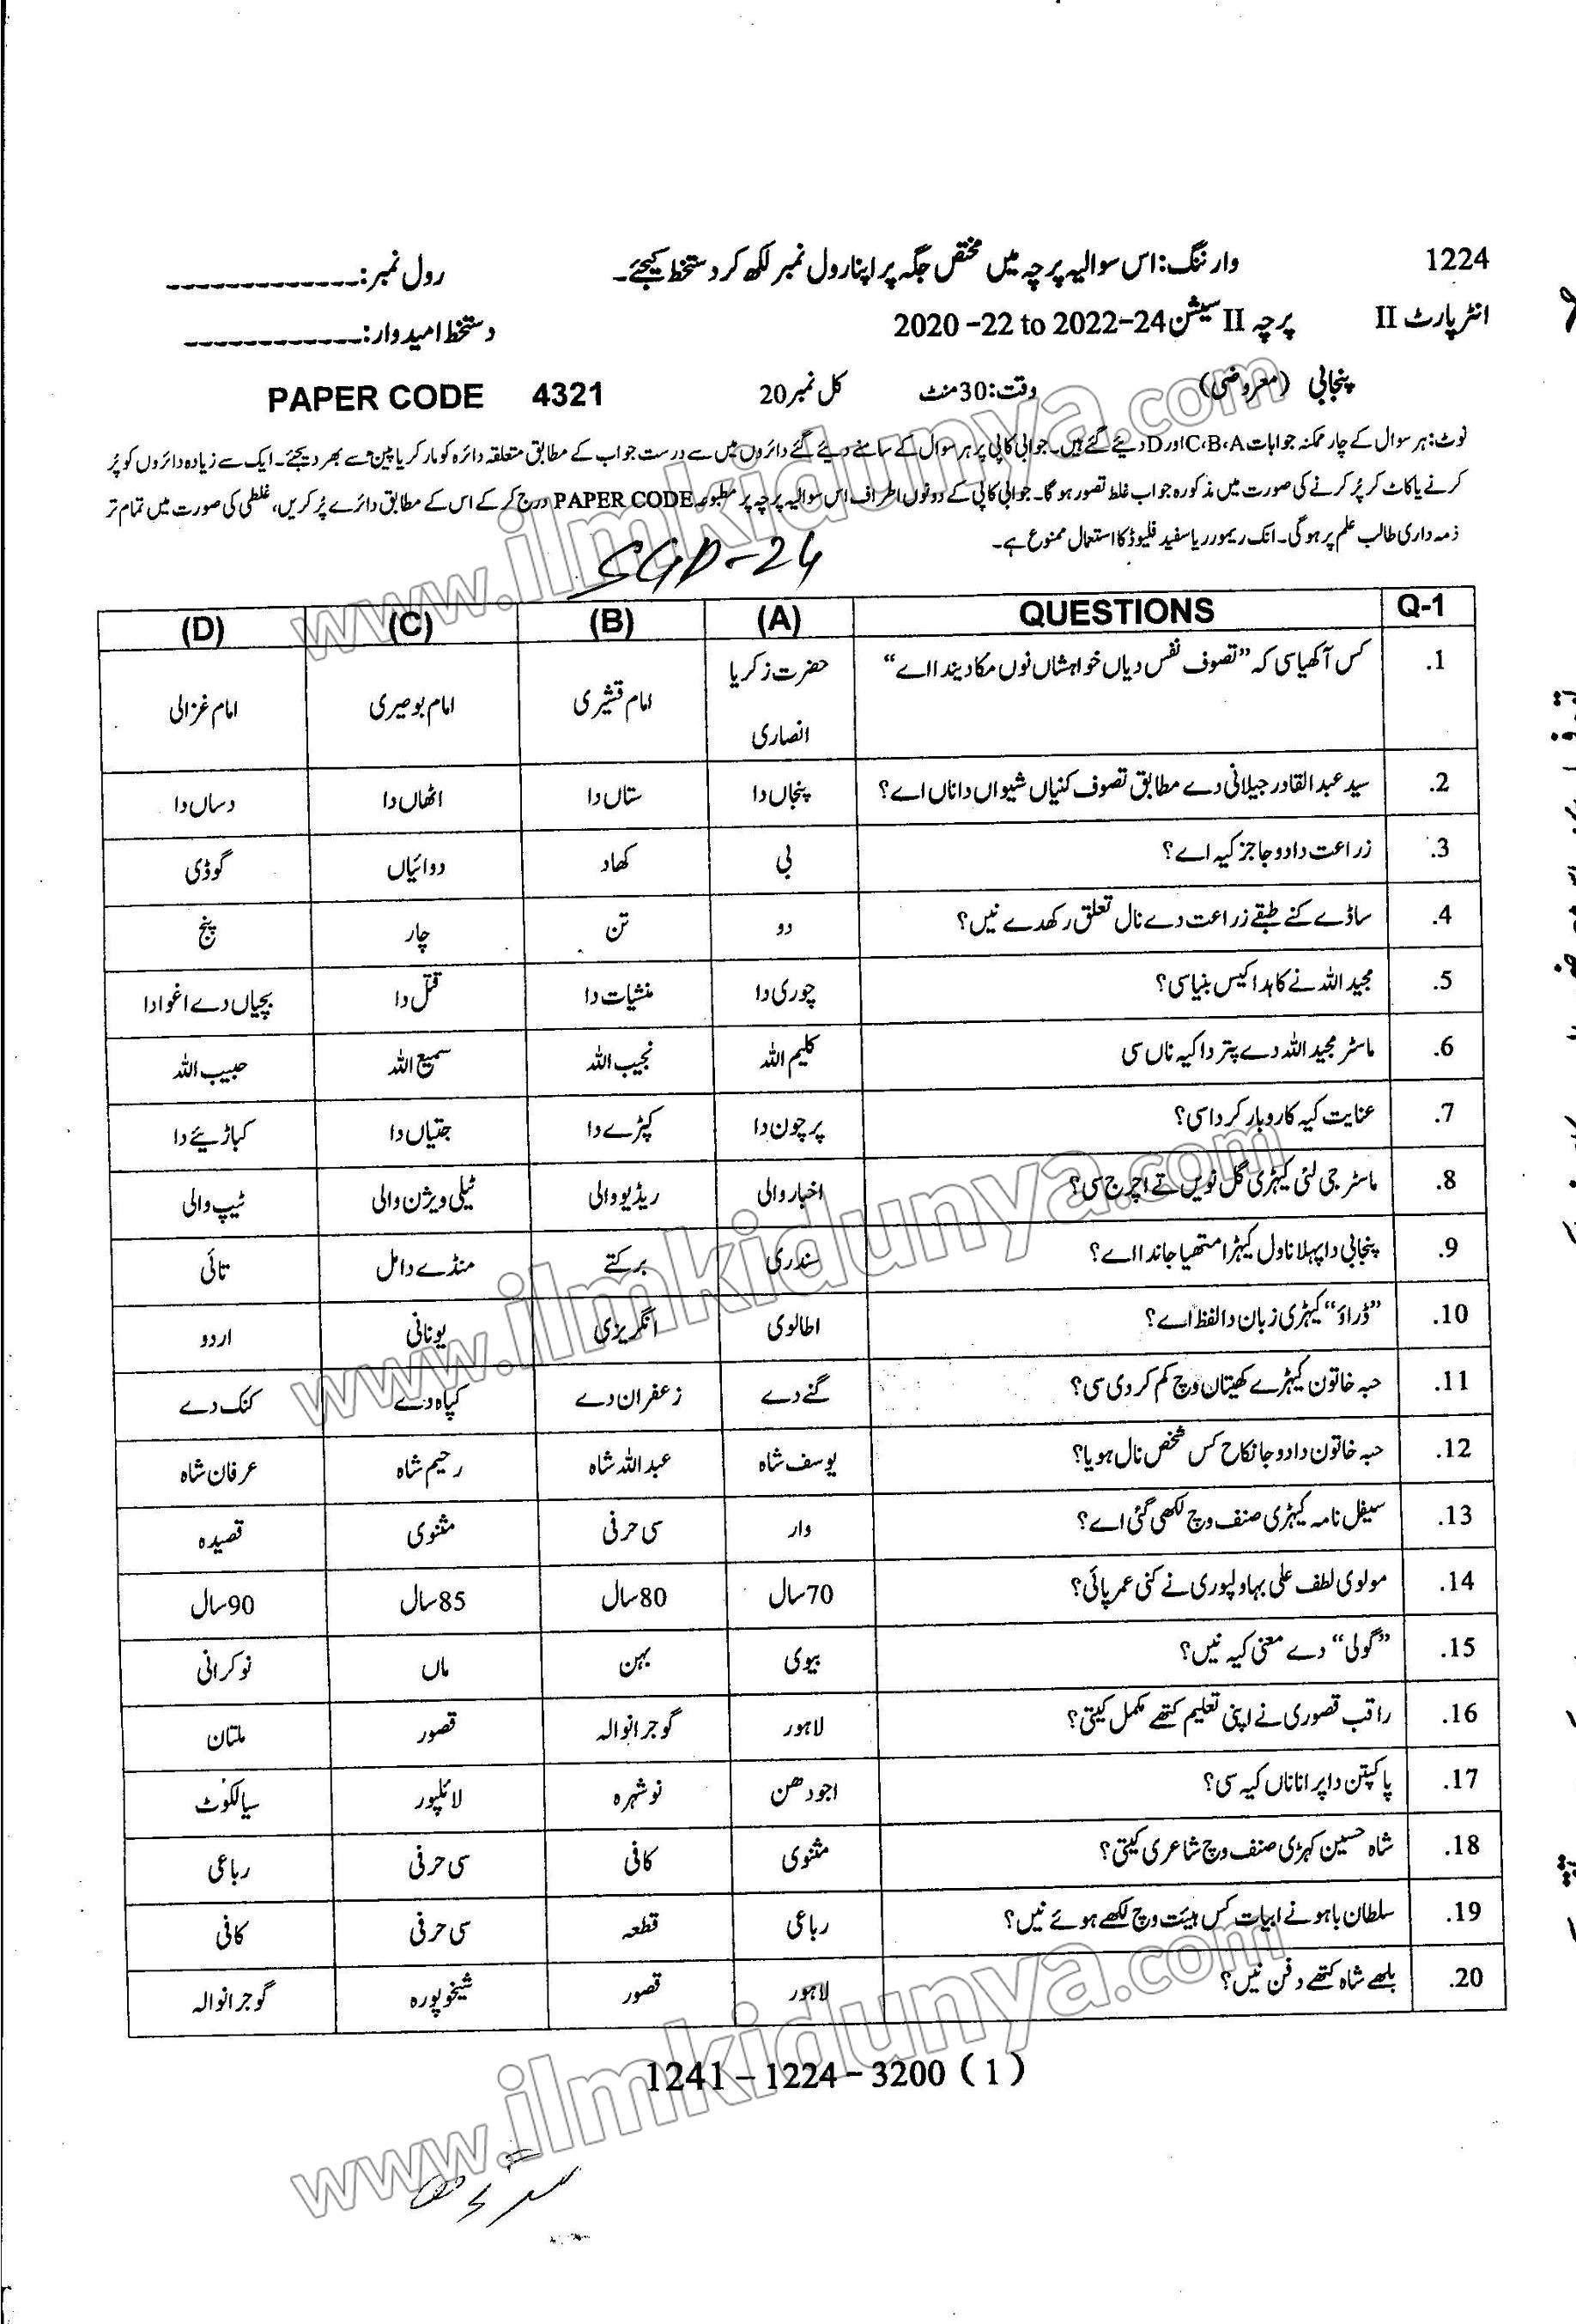 1224 وارننگ: اس سوالیہ پرچہ میں مختص جگہ پر اپنا رول نمبر لکھ کر دستخط کیجئے۔ رول نمبر: _____________
انٹر پارٹ II پرچہ II سیشن 2020 -22 to 2022-24 دستخط امیدوار: ____________
پنجابی (معروضی) وقت: 30 منٹ کل نمبر 20 PAPER CODE 4321
نوٹ: ہر سوال کے چار ممکنہ جوابات A، B، C اور D دیئے گئے ہیں۔ جوابی کاپی پر ہر سوال کے سامنے دیئے گئے دائروں میں سے درست جواب کے مطابق متعلقہ دائرہ کو مارکر یا پین سے بھر دیجئے۔ ایک سے زیادہ دائروں کو پُر
کرنے یا کاٹ کر پُر کرنے کی صورت میں مذکورہ جواب غلط تصور ہو گا۔ جوابی کاپی کے دونوں اطراف اس سوالیہ پرچہ پر مطبوعہ PAPER CODE درج کر کے اس کے مطابق دائرے پُر کریں، غلطی کی صورت میں تمام تر
ذمہ داری طالب علم پر ہوگی۔ انک ریمور یا سفید فلیوڈ کا استعمال ممنوع ہے۔
SGD-24
Q-1 QUESTIONS (A) (B) (C) (D)
1. کس آکھیا سی کہ ”تصوف نفس دیاں خواہشاں نوں مکا دیندا اے“ حضرت زکریا انصاری امام قشیری امام بوصیری امام غزالی
2. سید عبدالقادر جیلانی دے مطابق تصوف کنیاں شیواں دا ناں اے؟ پنجاں دا ستاں دا اٹھاں دا دساں دا
3. زراعت دا دوجا جز کیہ اے؟ بی کھاد دوائیاں گوڈی
4. ساڈے کنے طبقے زراعت دے نال تعلق رکھدے نیں؟ دو تن چار پنج
5. مجید اللہ نے کاہدا کیس بنیا سی؟ چوری دا منشیات دا قتل دا بچیاں دے اغوا دا
6. ماسٹر مجید اللہ دے پتر دا کیہ ناں سی کلیم اللہ نجیب اللہ سمیع اللہ حبیب اللہ
7. عنایت کیہ کاروبار کردا سی؟ پرچون دا کپڑے دا جتیاں دا کباڑیئے دا
8. ماسٹر جی لئی کیہڑی گل نویں تے اچرج سی؟ اخبار والی ریڈیو والی ٹیلی ویژن والی ٹیپ والی
9. پنجابی دا پہلا ناول کیہڑا متھیا جاندا اے؟ سندری برکتے منڈے دا مل تائی
10. ”ڈراؤ“ کیہڑی زبان دا لفظ اے؟ اطالوی انگریزی یونانی اردو
11. حبہ خاتون کیہڑے کھیتاں وچ کم کردی سی؟ گنے دے زعفران دے کپاہ دے کنک دے
12. حبہ خاتون دا دوجا نکاح کس شخص نال ہویا؟ یوسف شاہ عبداللہ شاہ رحیم شاہ عرفان شاہ
13. سیفل نامہ کیہڑی صنف وچ لکھی گئی اے؟ وار سی حرفی مثنوی قصیدہ
14. مولوی لطف علی بہاولپوری نے کنی عمر پائی؟ 70 سال 80 سال 85 سال 90 سال
15. ”گولی“ دے معنی کیہ نیں؟ بیوی بہن ماں نوکرانی
16. راقب قصوری نے اپنی تعلیم کتھے مکمل کیتی؟ لاہور گوجرانوالہ قصور ملتان
17. پاکپتن دا پرانا ناں کیہ سی؟ اجودھن نوشہرہ لائلپور سیالکوٹ
18. شاہ حسین کہڑی صنف وچ شاعری کیتی؟ مثنوی کافی سی حرفی رباعی
19. سلطان باہو نے ابیات کس ہیئت وچ لکھے ہوئے نیں؟ رباعی قطعہ سی حرفی کافی
20. بلھے شاہ کتھے دفن نیں؟ لاہور قصور شیخوپورہ گوجرانوالہ
1241 – 1224 – 3200 ( 1 )
www.ilmkidunya.com
www.ilmkidunya.com
www.ilmkidunya.com